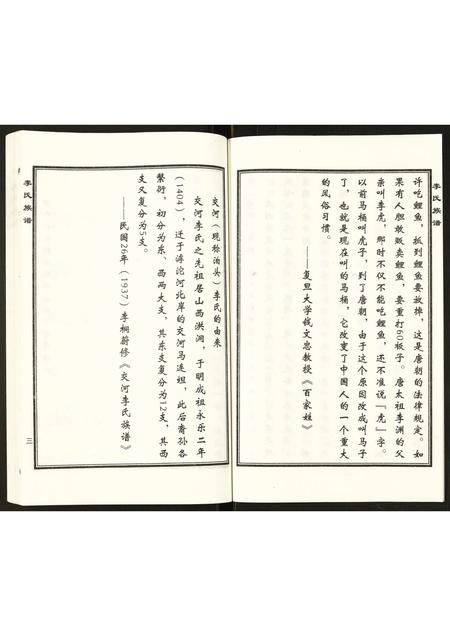 李氏族谱
许吃鲤鱼，抓到鲤鱼要放掉，这是唐朝的法律规定。如
果有人胆敢贩卖鲤鱼，要重打60板子。唐太祖李渊的父
亲叫李虎，那时不仅不能吃鲤鱼，还不准说「虎」字。
以前马桶叫虎子，到了唐朝，由于这个原因改成叫马子
了，也就是现在叫的马桶，它改变了中国人的一个重大
的风俗习惯。
——复旦大学钱文忠教授《百家姓》
交河（现称泊头）李氏的由来
交河李氏之先祖居山西洪洞，于明成祖永乐二年
（1404），迁于滹沱河北岸的交河马连坦，此后裔孙各
繁衍，初分为东、西两大支，其东支复分为12支，其西
支又复分为5支。
——民国26年（1937）李桐蔚修《交河李氏族谱》
李氏族谱
三